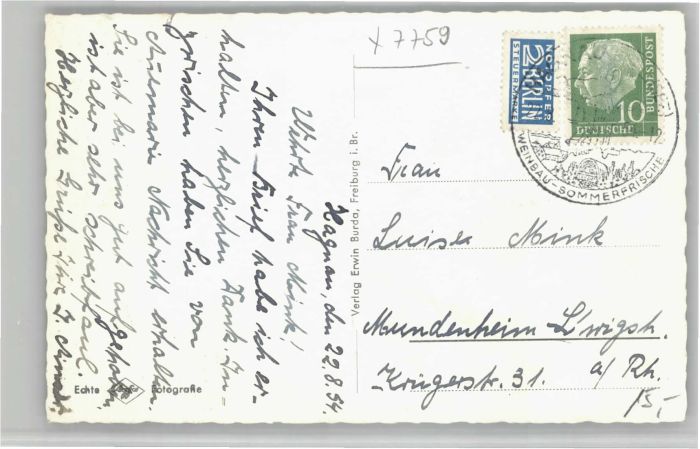 x 7759
NOTOPFER
2 BERLIN
STEUERMARKE
10
DEUTSCHE
BUNDESPOST
WEINBAU-SOMMERFRISCHE
Hagnau, den 22.8.54
Werte Frau Mink!
Ihren Brief habe ich er-
halten, herzlichen Dank. In-
zwischen haben Sie von
Annemarie Nachricht erhalten.
Sie ist bei uns gut aufgehoben
ist aber sehr schreibfaul.
Herzliche Grüße Ihre
Verlag Erwin Burda, Freiburg i. Br.
Echte Fotografie
Frau
Luise Mink
Mundenheim L'wigsh.
a/Rh.
Krügerstr. 31.
15,-